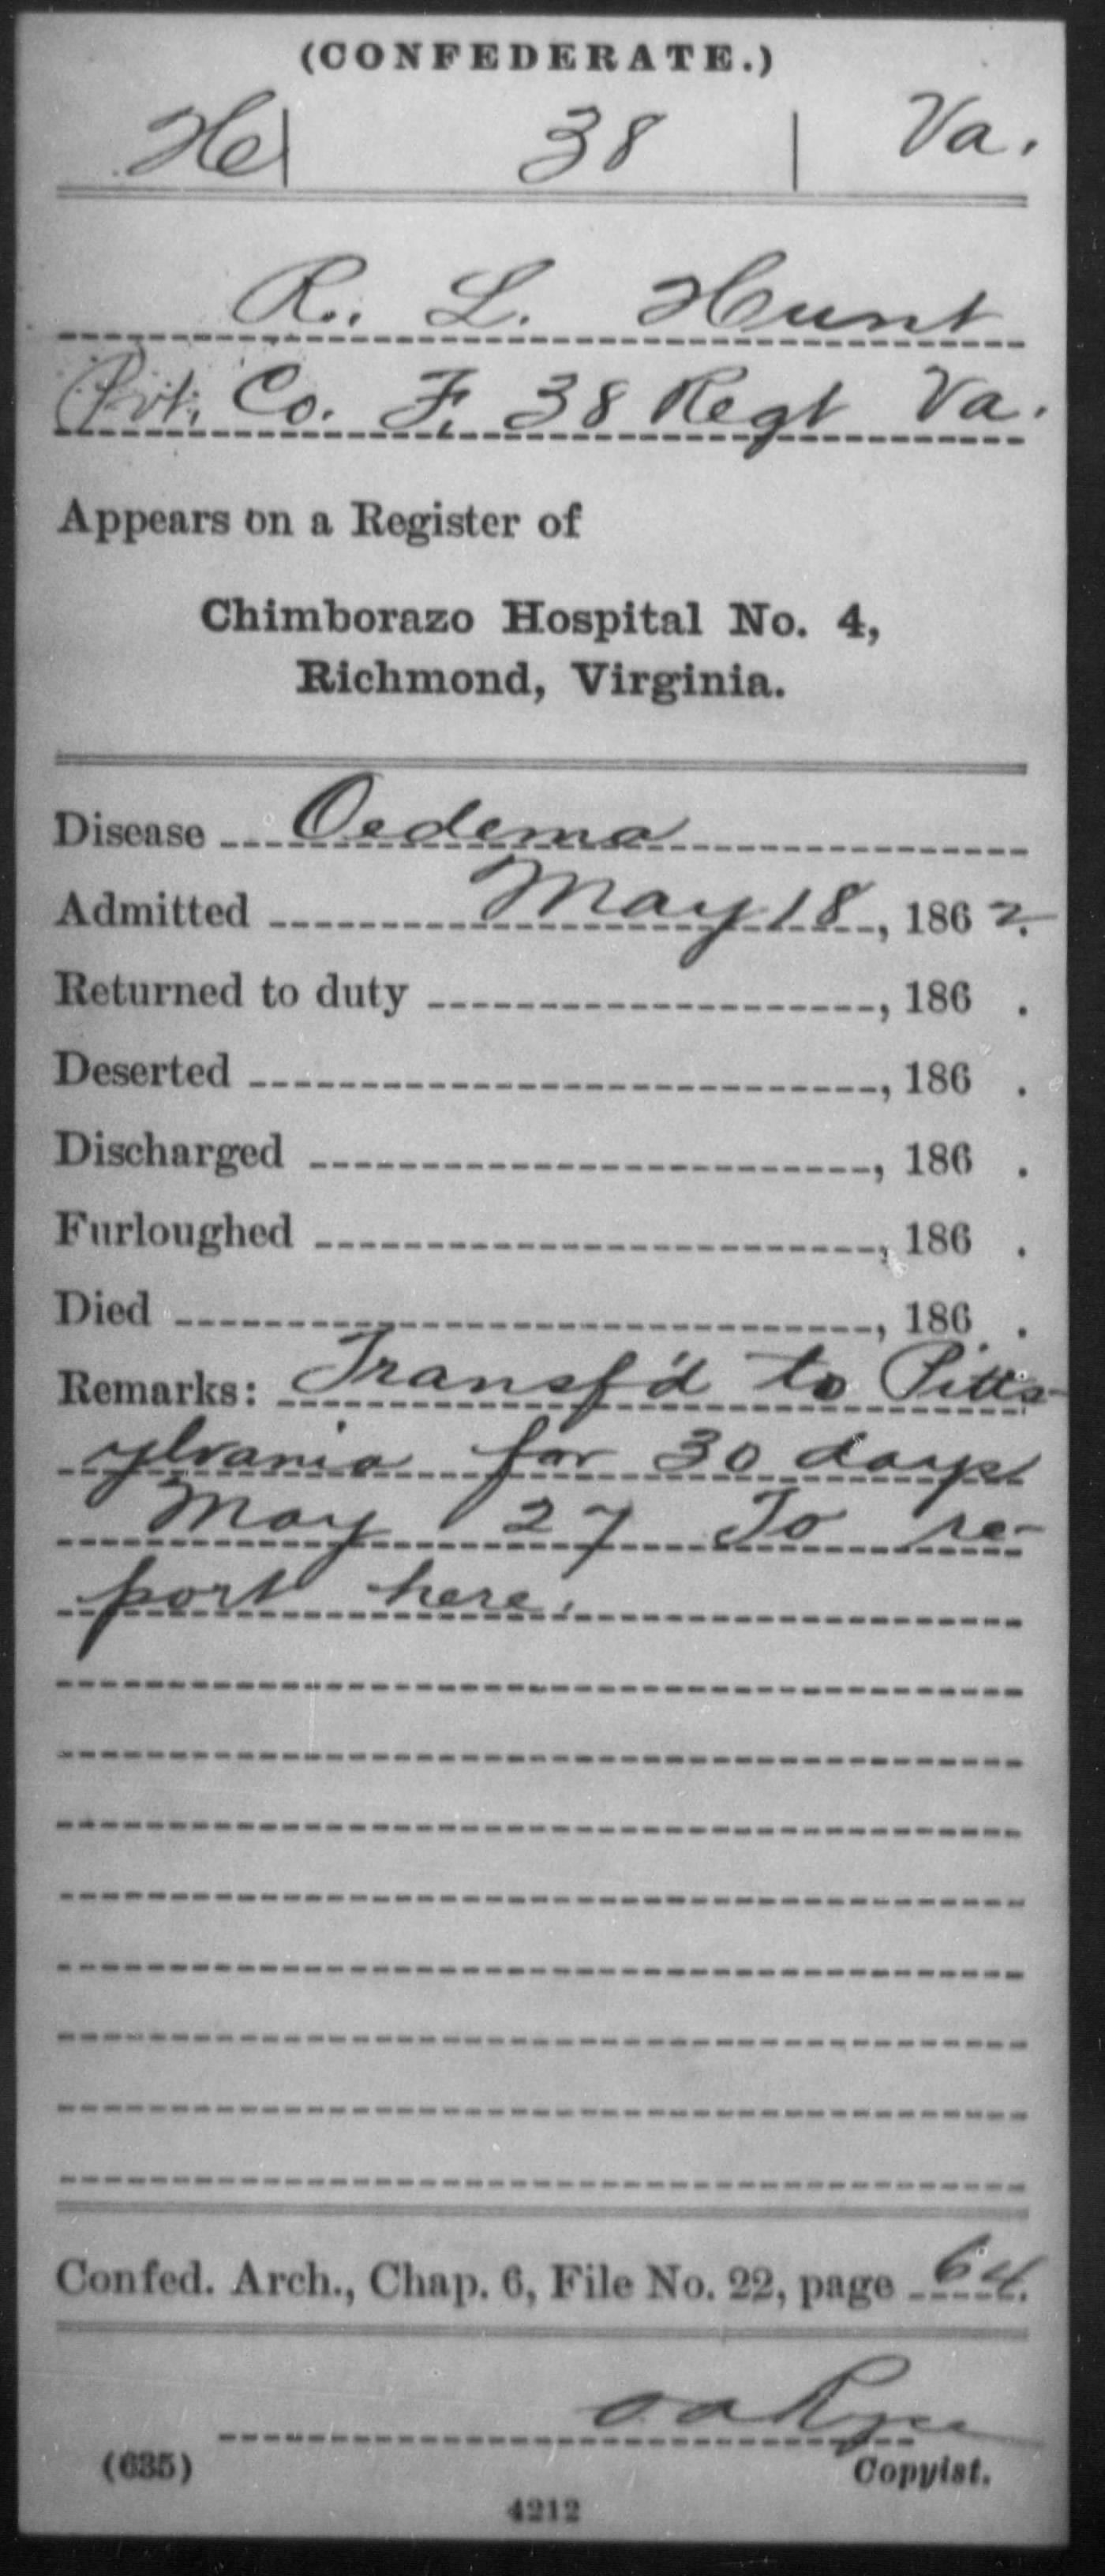 (CONFEDERATE.)
H | 38 | Va.
R. L. Hunt
Pvt. Co. F, 38 Regt Va.
Appears on a Register of
Chimborazo Hospital No. 4,
Richmond, Virginia.
Disease Oedema
Admitted May 18, 1862.
Returned to duty , 186 .
Deserted , 186 .
Discharged , 186 .
Furloughed , 186 .
Died , 186 .
Remarks: Transf'd to Pitts-
ylvania for 30 days
May 27 To re-
port here.
Confed. Arch., Chap. 6, File No. 22, page 64.
(635)
Copyist.
4212